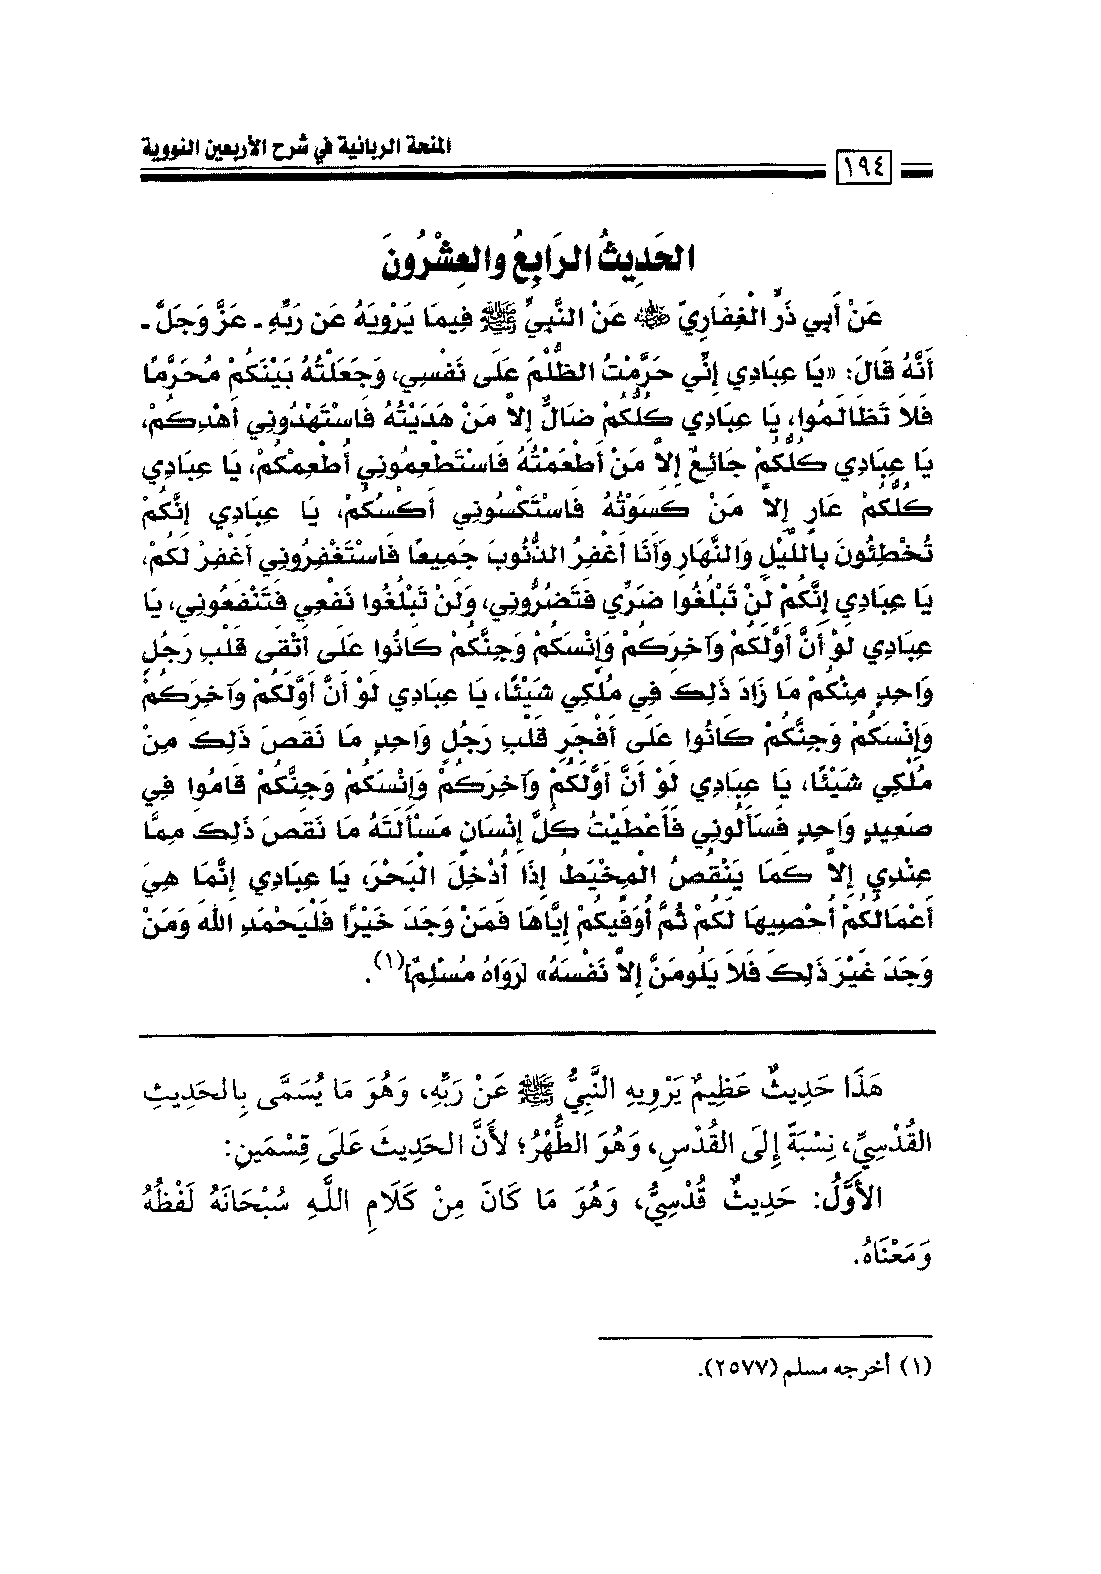 المنحة الربانية في شرح الأربعين النووية
١٩٤
الحَدِيثُ الرَابِعُ والعِشْرُونَ
عَنْ أَبِي ذَرٍّ الْغِفَارِيِّ ﵁ عَنْ النَّبِيِّ ﷺ فِيمَا يَرْوِيَهُ عَن رَبِّهِ ـ عَزَّ وَجَلَّ ـ
أَنَّهُ قَالَ: «يَا عِبَادِي إِنِّي حَرَّمْتُ الظُّلْمَ عَلَى نَفْسِي، وَجَعَلْتُهُ بَيْنَكُمْ مُحَرَّمًا
فَلَا تَظَالَمُوا، يَا عِبَادِي كُلُّكُمْ ضَالٌّ إِلاَّ مَنْ هَدَيْتُهُ فَاسْتَهْدُونِي أَهْدِكُمْ،
يَا عِبَادِي كُلُّكُمْ جَائِعٌ إِلاَّ مَنْ أَطْعَمْتُهُ فَاسْتَطْعِمُونِي أُطْعِمْكُمْ، يَا عِبَادِي
كُلُّكُمْ عَارٍ إِلاَّ مَنْ كَسَوْتُهُ فَاسْتَكْسُونِي أَكْسُكُمْ، يَا عِبَادِي إِنَّكُمْ
تُخْطِئُونَ بِاللَّيْلِ وَالنَّهَارِ وَأَنَا أَغْفِرُ الذُّنُوبَ جَمِيعًا فَاسْتَغْفِرُونِي أَغْفِرْ لَكُمْ،
يَا عِبَادِي إِنَّكُمْ لَنْ تَبْلُغُوا ضَرِّي فَتَضُرُّونِي، وَلَنْ تَبْلُغُوا نَفْعِي فَتَنْفَعُونِي، يَا
عِبَادِي لَوْ أَنَّ أَوَّلَكُمْ وَآخِرَكُمْ وَإِنْسَكُمْ وَجِنَّكُمْ كَانُوا عَلَى أَتْقَى قَلْبِ رَجُلٍ
وَاحِدٍ مِنْكُمْ مَا زَادَ ذَلِكَ فِي مُلْكِي شَيْئًا، يَا عِبَادِي لَوْ أَنَّ أَوَّلَكُمْ وَآخِرَكُمْ
وَإِنْسَكُمْ وَجِنَّكُمْ كَانُوا عَلَى أَفْجَرِ قَلْبِ رَجُلٍ وَاحِدٍ مَا نَقَصَ ذَلِكَ مِنْ
مُلْكِي شَيْئًا، يَا عِبَادِي لَوْ أَنَّ أَوَّلَكُمْ وَآخِرَكُمْ وَإِنْسَكُمْ وَجِنَّكُمْ قَامُوا فِي
صَعِيدٍ وَاحِدٍ فَسَأَلُونِي فَأَعْطَيْتُ كُلَّ إِنْسَانٍ مَسْأَلَتَهُ مَا نَقَصَ ذَلِكَ مِمَّا
عِنْدِي إِلاَّ كَمَا يَنْقُصُ الْمِخْيَطُ إِذَا أُدْخِلَ الْبَحْرَ، يَا عِبَادِي إِنَّمَا هِيَ
أَعْمَالُكُمْ أُحْصِيهَا لَكُمْ ثُمَّ أُوَفِّيكُمْ إِيَّاهَا فَمَنْ وَجَدَ خَيْرًا فَلْيَحْمَدِ اللَّهَ وَمَنْ
وَجَدَ غَيْرَ ذَلِكَ فَلَا يَلُومَنَّ إِلاَّ نَفْسَهُ» [رَوَاهُ مُسْلِمٌ](١).
هَذَا حَدِيثٌ عَظِيمٌ يَرْوِيهِ النَّبِيُّ ﷺ عَنْ رَبِّهِ، وَهُوَ مَا يُسَمَّى بِالحَدِيثِ
القُدْسِيِّ، نِسْبَةً إِلَى القُدْسِ، وَهُوَ الطُّهْرُ؛ لأَنَّ الحَدِيثَ عَلَى قِسْمَينِ:
الأَوَّلُ: حَدِيثٌ قُدْسِيٌّ، وَهُوَ مَا كَانَ مِنْ كَلَامِ اللَّهِ سُبْحَانَهُ لَفْظُهُ
وَمَعْنَاهُ.
(١) أخرجه مسلم (٢٥٧٧).